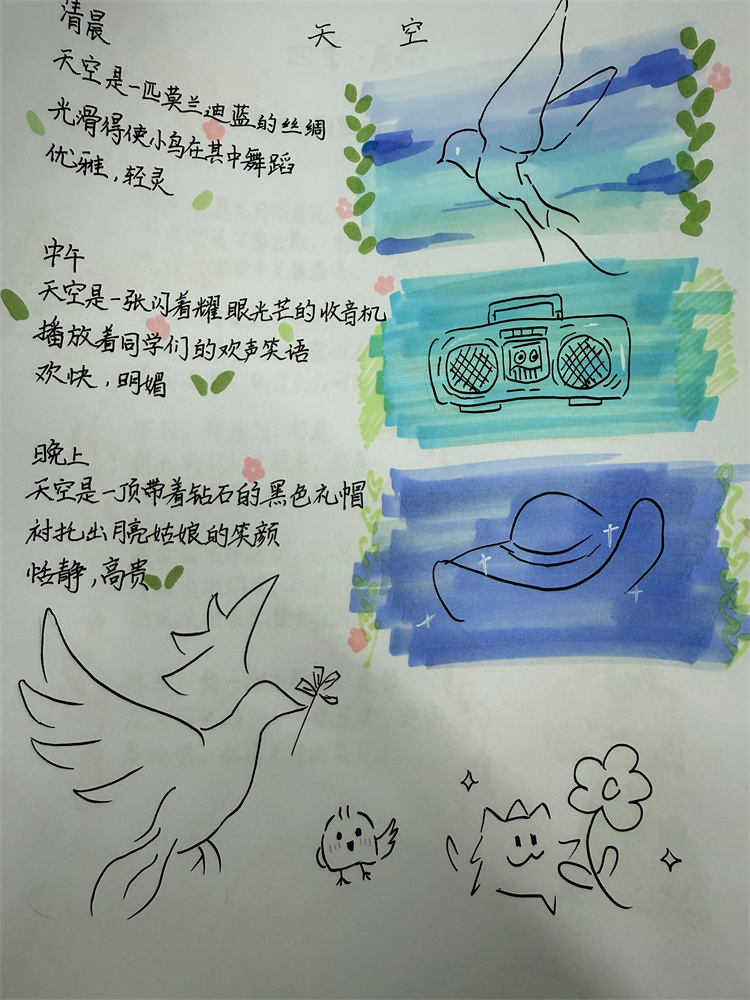 天空
清晨
天空是一匹莫兰迪蓝的丝绸
光滑得使小鸟在其中舞蹈
优雅,轻灵
中午
天空是一张闪着耀眼光芒的收音机
播放着同学们的欢声笑语
欢快,明媚
晚上
天空是一顶带着钻石的黑色礼帽
衬托出月亮姑娘的笑颜
恬静,高贵